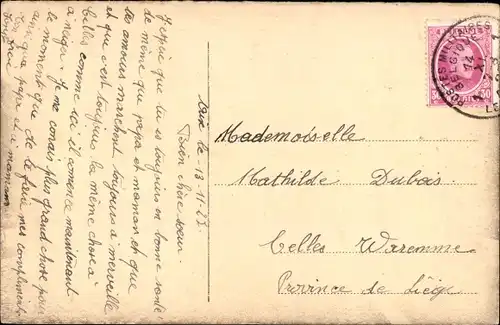 Laix le 13-11-23
Bien chère sœur
J'espère que tu es toujours en bonne santé
de même que papa et maman et que
tes amours marchent toujours à merveille
et que c'est toujours la même chose à
Celles comme ici il comence maintenant
a neiger. Je ne conais plus grand chose pour
le moment que de te faire mes compliments
que papa et maman
Mademoiselle
Mathilde Dubois
Celles Waremme
Province de Liége
POSTES MILITAIRES
BELGIQUE